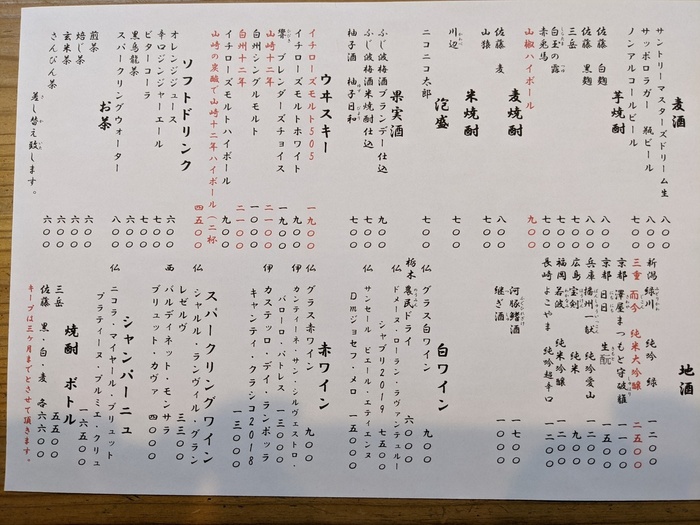 麦酒
サントリーマスターズドリーム生 八〇〇
サッポロラガー 瓶ビール 八〇〇
ノンアルコールビール 七〇〇
芋焼酎
佐藤 白麹 八〇〇
佐藤 黒麹 八〇〇
三岳 七〇〇
白玉の露 七〇〇
赤兎馬 七〇〇
山椒ハイボール 九〇〇
麦焼酎
佐藤 麦 八〇〇
山猿 七〇〇
米焼酎
川辺 七〇〇
泡盛
ニコニコ太郎 七〇〇
果実酒
ふじ波梅酒ブランデー仕込 九〇〇
ふじ波梅酒米焼酎仕込 七〇〇
柚子酒 柚子日和 七〇〇
ウヰスキー
イチローズモルト505 一九〇〇
イチローズモルトホワイト 九〇〇
響 ブレンダーズチョイス 一九〇〇
山崎十二年 二一〇〇
白州シングルモルト 一〇〇〇
白州十二年 二一〇〇
イチローズモルトハイボール 九〇〇
山崎の炭酸で山崎十二年ハイボール(二杯 四五〇〇
ソフトドリンク
オレンジジュース 六〇〇
辛口ジンジャーエール 七〇〇
ビターコーラ 七〇〇
黒烏龍茶 七〇〇
スパークリングウォーター 八〇〇
お茶
煎茶 六〇〇
焙じ茶 六〇〇
玄米茶 六〇〇
さんぴん茶 六〇〇
差し替え致します。
地酒
新潟 緑川 純吟 緑 一二〇〇
三重 而今 純米大吟醸 二五〇〇
京都 澤屋まつもと守破離 一一〇〇
京都 日日 生酛 一五〇〇
兵庫 播州一献 純吟愛山 一二〇〇
広島 宝剣 純米 九〇〇
福岡 若波 純米吟醸 一二〇〇
長崎 よこやま 純吟超辛口 一二〇〇
河豚鰭酒 一七〇〇
継ぎ酒 九〇〇
白ワイン
仏 グラス白ワイン 九〇〇
栃木 農民ドライ 六〇〇〇
仏 ドメーヌ・ローラン・ラヴァンテュルー
シャブリ2019 七五〇〇
仏 サンセール ピエール・エティエンヌ
Dmジョセフ・メロ 一一五〇〇
赤ワイン
仏 グラス赤ワイン 九〇〇
伊 カンティーネ・サン・シルヴェストロ・
バローロ・パトレス 一三〇〇〇
伊 カステッロ・デイ・ランポッラ
キャンティ・クラシコ2018 一三〇〇〇
スパークリングワイン
仏 シャルル・ランヴィル・グラン
レゼルヴ 三三〇〇
西 パルディネット・モンサラ
ブリュット・カヴァ 四〇〇〇
シャンパーニュ
仏 ニコラ・マイヤール・ブリュット
プラティーヌ・プルミエ・クリュ
一六五〇〇
焼酎 ボトル
三岳 五五〇〇
佐藤 黒・白・麦 各六六〇〇
キープは三ヶ月までとさせて頂きます。